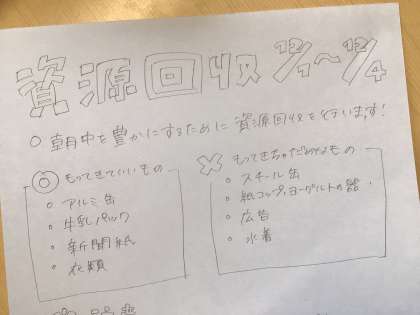 資源回収 12/1〜12/4
○ 朝中を豊かにするために 資源回収を行います!
◎ もってきていいもの
○ アルミ缶
○ 牛乳パック
○ 新聞紙
○ 衣類
× もってきちゃだめなもの
○ スチール缶
○ 紙コップ、ヨーグルトの器
○ 広告
○ 水着